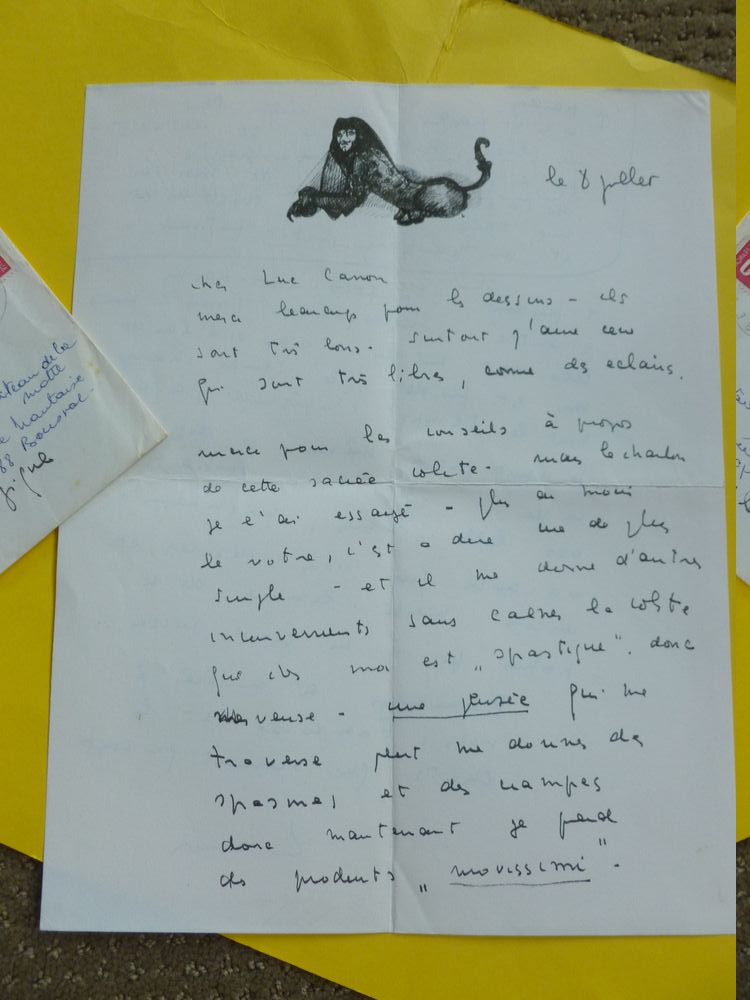 le 8 juillet
cher Luc Canon
merci beaucoup pour les dessins - ils
sont très bons. surtout j'aime ceux
qui sont très libres, comme des eclairs.
merci pour les conseils à propos
de cette sacrée colite. mais le charbon
je l'ai essayé - plus ou moins
le votre, c'est a dire une de plus
simple - et il me donne d'autres
inconvenients sans calmer la colite
que chez moi est „spastique". donc
nerveuse - une pensée qui me
traverse peut me donner des
spasmes et des crampes
donc maintenant je prend
des produits „novissimi" -
teau de la
motte
Nantaise
88 Bousval